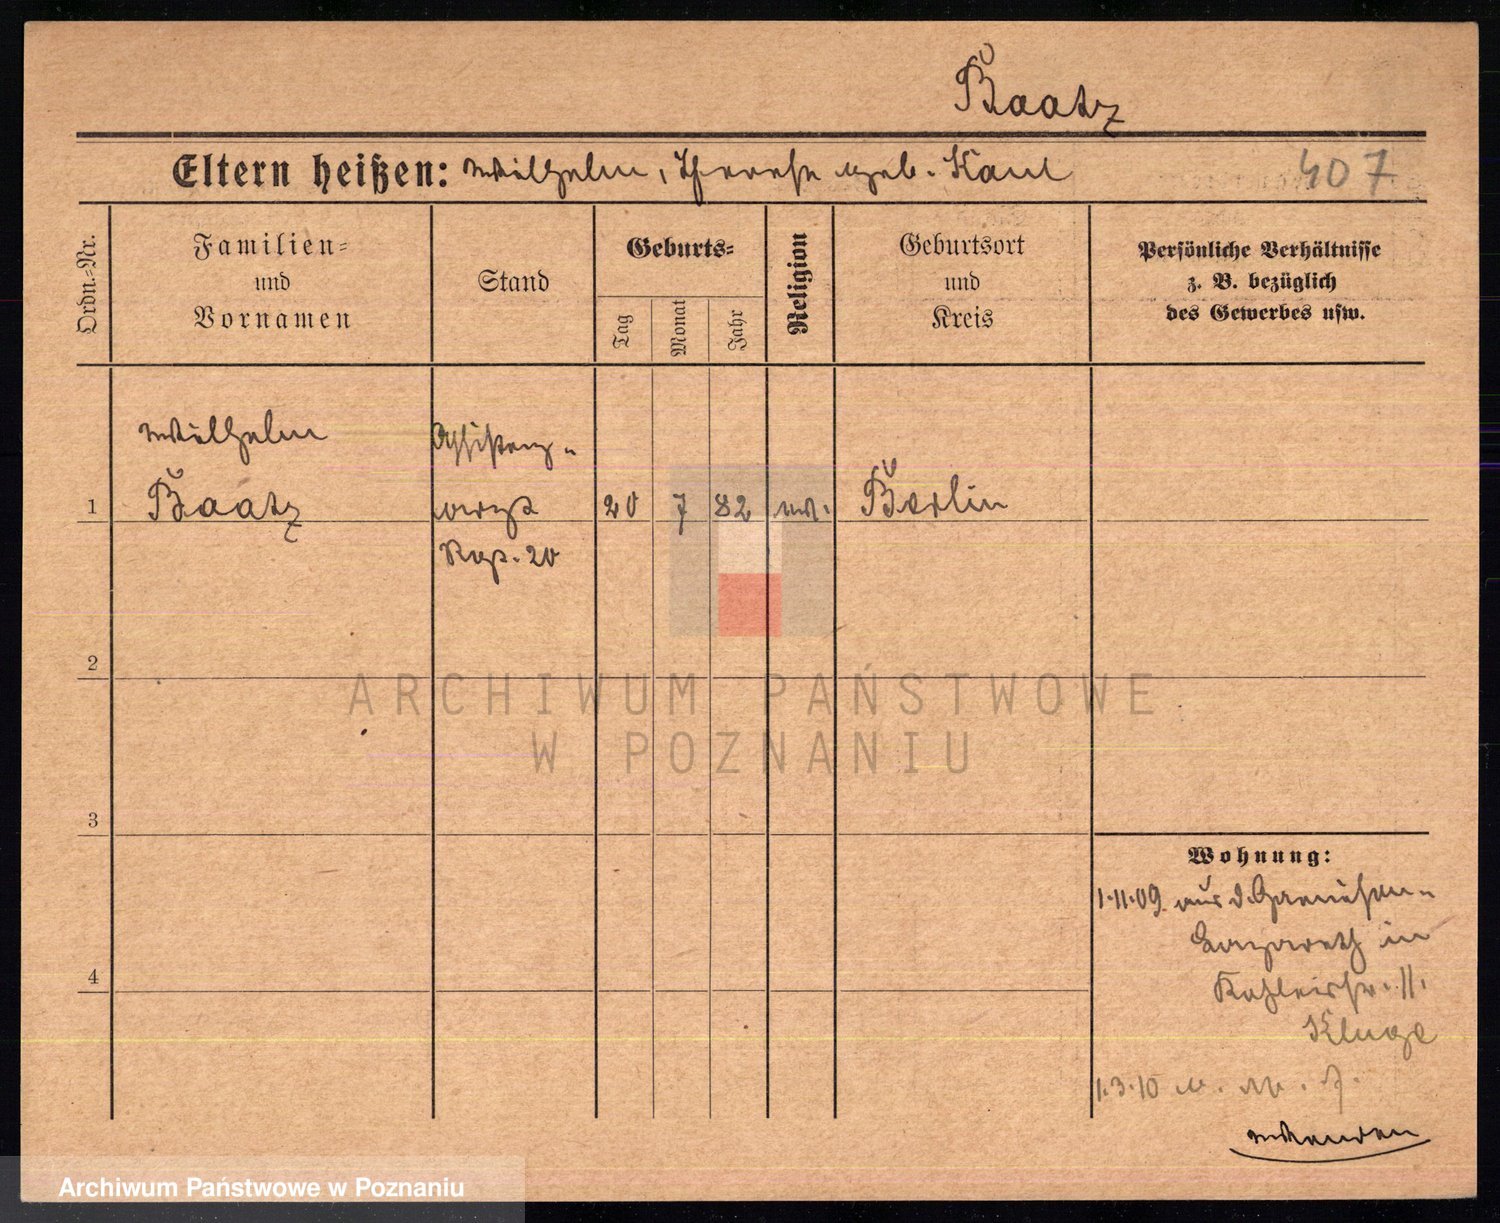 Baatz
Eltern heißen: Wilhelm, Therese geb. Kaul
407
Ordn.-Nr.
Familien-
und
Vornamen
Stand
Geburts-
Tag
Monat
Jahr
Religion
Geburtsort
und
Kreis
Persönliche Verhältnisse
z. B. bezüglich
des Gewerbes usw.
Wilhelm Assistenz-
1 Baatz arzt 20 7 82 ev. Berlin
20
2
ARCHIWUM PAŃSTWOWE
W POZNANIU
3
Wohnung:
1.11.09 aus d. Garnison-
Lazareth in
11.
4
Kluge
1.3.10
Archiwum Państwowe w Poznaniu